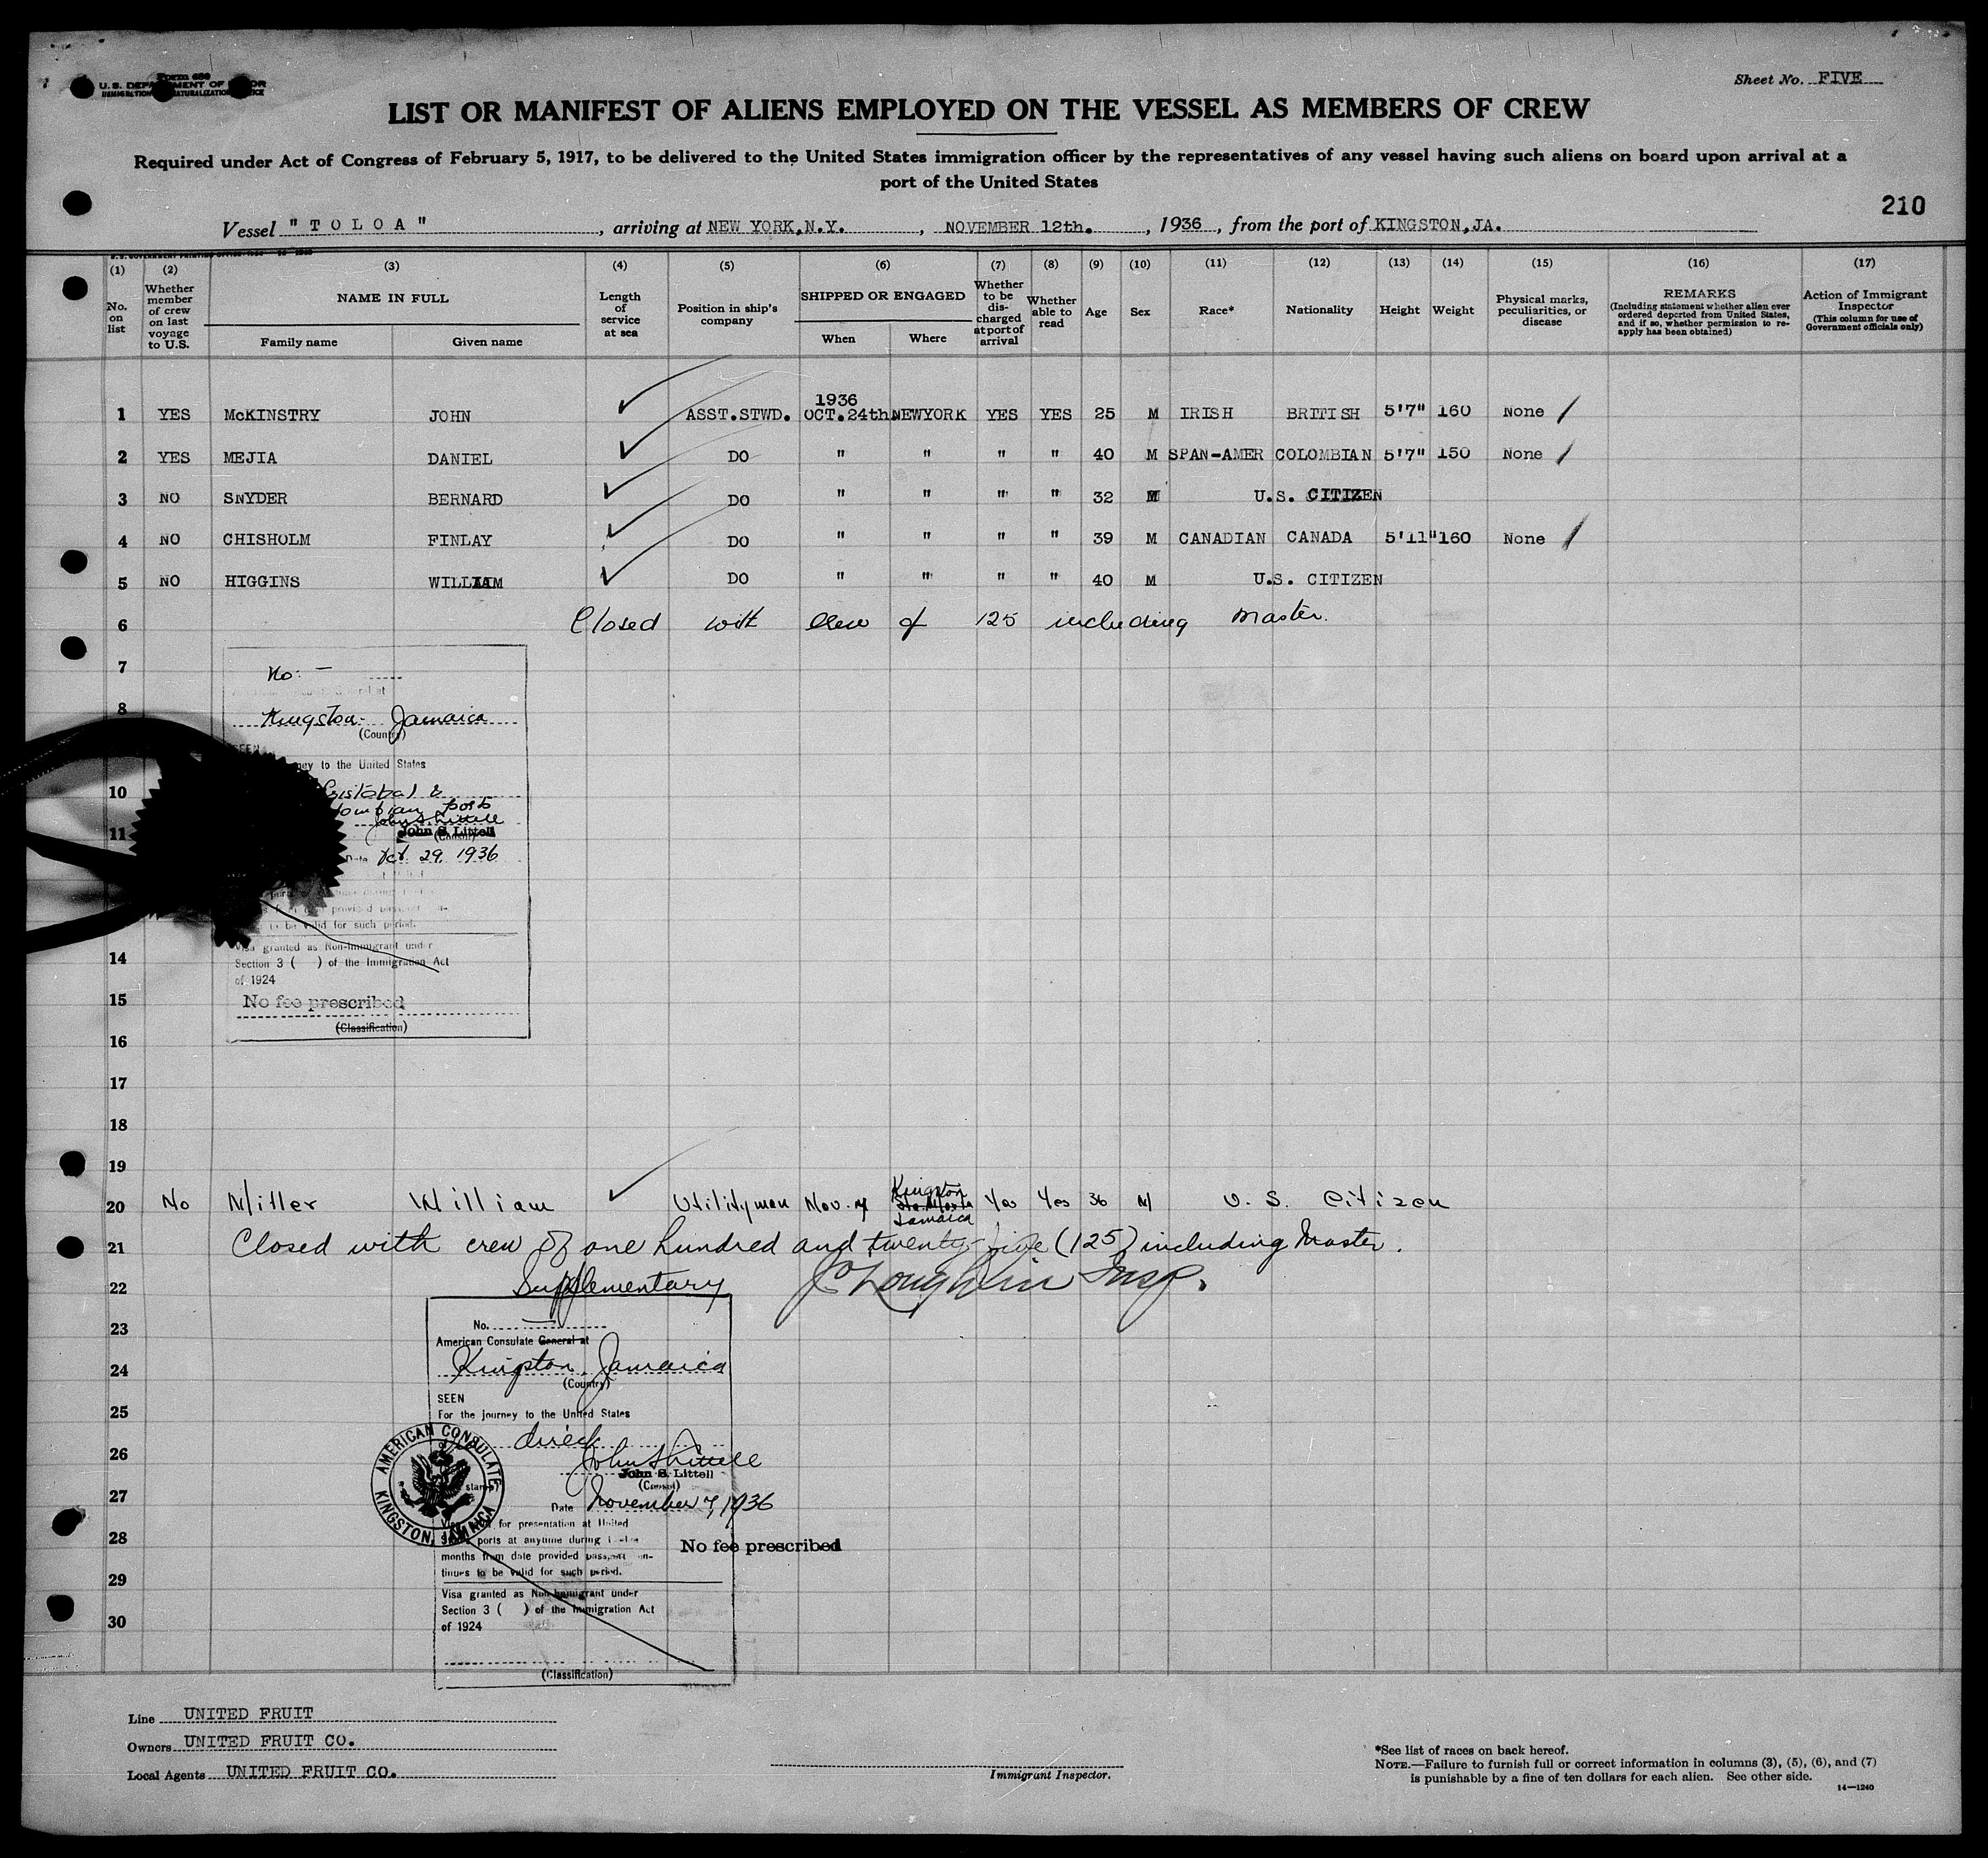 Form 680
U.S. DEPARTMENT OF LABOR
IMMIGRATION NATURALIZATION SERVICE
Sheet No. FIVE
LIST OR MANIFEST OF ALIENS EMPLOYED ON THE VESSEL AS MEMBERS OF CREW
Required under Act of Congress of February 5, 1917, to be delivered to the United States immigration officer by the representatives of any vessel having such aliens on board upon arrival at a
port of the United States
210
Vessel "TOLOA", arriving at NEW YORK,N.Y., NOVEMBER 12th., 1936, from the port of KINGSTON,JA.
(1) (2) (3) (4) (5) (6) (7) (8) (9) (10) (11) (12) (13) (14) (15) (16) (17)
No. on list
Whether member of crew on last voyage to U.S.
NAME IN FULL
Family name Given name
Length of service at sea
Position in ship's company
SHIPPED OR ENGAGED
When Where
Whether to be discharged at port of arrival
Whether able to read
Age
Sex
Race*
Nationality
Height
Weight
Physical marks, peculiarities, or disease
REMARKS
(Including statement whether alien ever ordered deported from United States, and if so, whether permission to reapply has been obtained)
Action of Immigrant Inspector
(This column for use of Government officials only)
1936
1 YES McKINSTRY JOHN ASST.STWD. OCT.24th NEWYORK YES YES 25 M IRISH BRITISH 5'7" 160 None
2 YES MEJIA DANIEL DO " " " " 40 M SPAN-AMER COLOMBIAN 5'7" 150 None
3 NO SNYDER BERNARD DO " " " " 32 M U.S. CITIZEN
4 NO CHISHOLM FINLAY DO " " " " 39 M CANADIAN CANADA 5'11" 160 None
5 NO HIGGINS WILLIAM DO " " " " 40 M U.S. CITIZEN
6 Closed with crew of 125 including Master.
7
No. —
8
Kingston Jamaica
(Country)
SEEN
ney to the United States
10
Cristobal &
ports
11
John S Littell
John S. Littell
(Consul)
Date Oct. 29, 1936
provided passport
to be valid for such period.
Visa granted as Non-Immigrant under
14
Section 3 ( ) of the Immigration Act
of 1924
15
No fee prescribed
(Classification)
16
17
18
19
20 No Miller William Utilityman Nov. 7 Kingston Jamaica Yes Yes 36 M U.S. Citizen
21 Closed with crew of one hundred and twenty-five (125) including Master.
22 Supplementary J C Loughlin Insp.
23
No. —
American Consulate General at
24
Kingston, Jamaica
(Country)
SEEN
25
For the journey to the United States
direct
26
John S Littell
John S. Littell
(Consul)
27
Date November 7, 1936
AMERICAN CONSULATE
KINGSTON, JAMAICA
for presentation at United
28
ports at anytime during
No fee prescribed
months from date provided passport con-
tinues to be valid for such period.
29
Visa granted as Non-Immigrant under
Section 3 ( ) of the Immigration Act
30
of 1924
(Classification)
Line UNITED FRUIT
Owners UNITED FRUIT CO.
Local Agents UNITED FRUIT CO.
Immigrant Inspector.
*See list of races on back hereof.
NOTE.—Failure to furnish full or correct information in columns (3), (5), (6), and (7)
is punishable by a fine of ten dollars for each alien. See other side.
14—1240